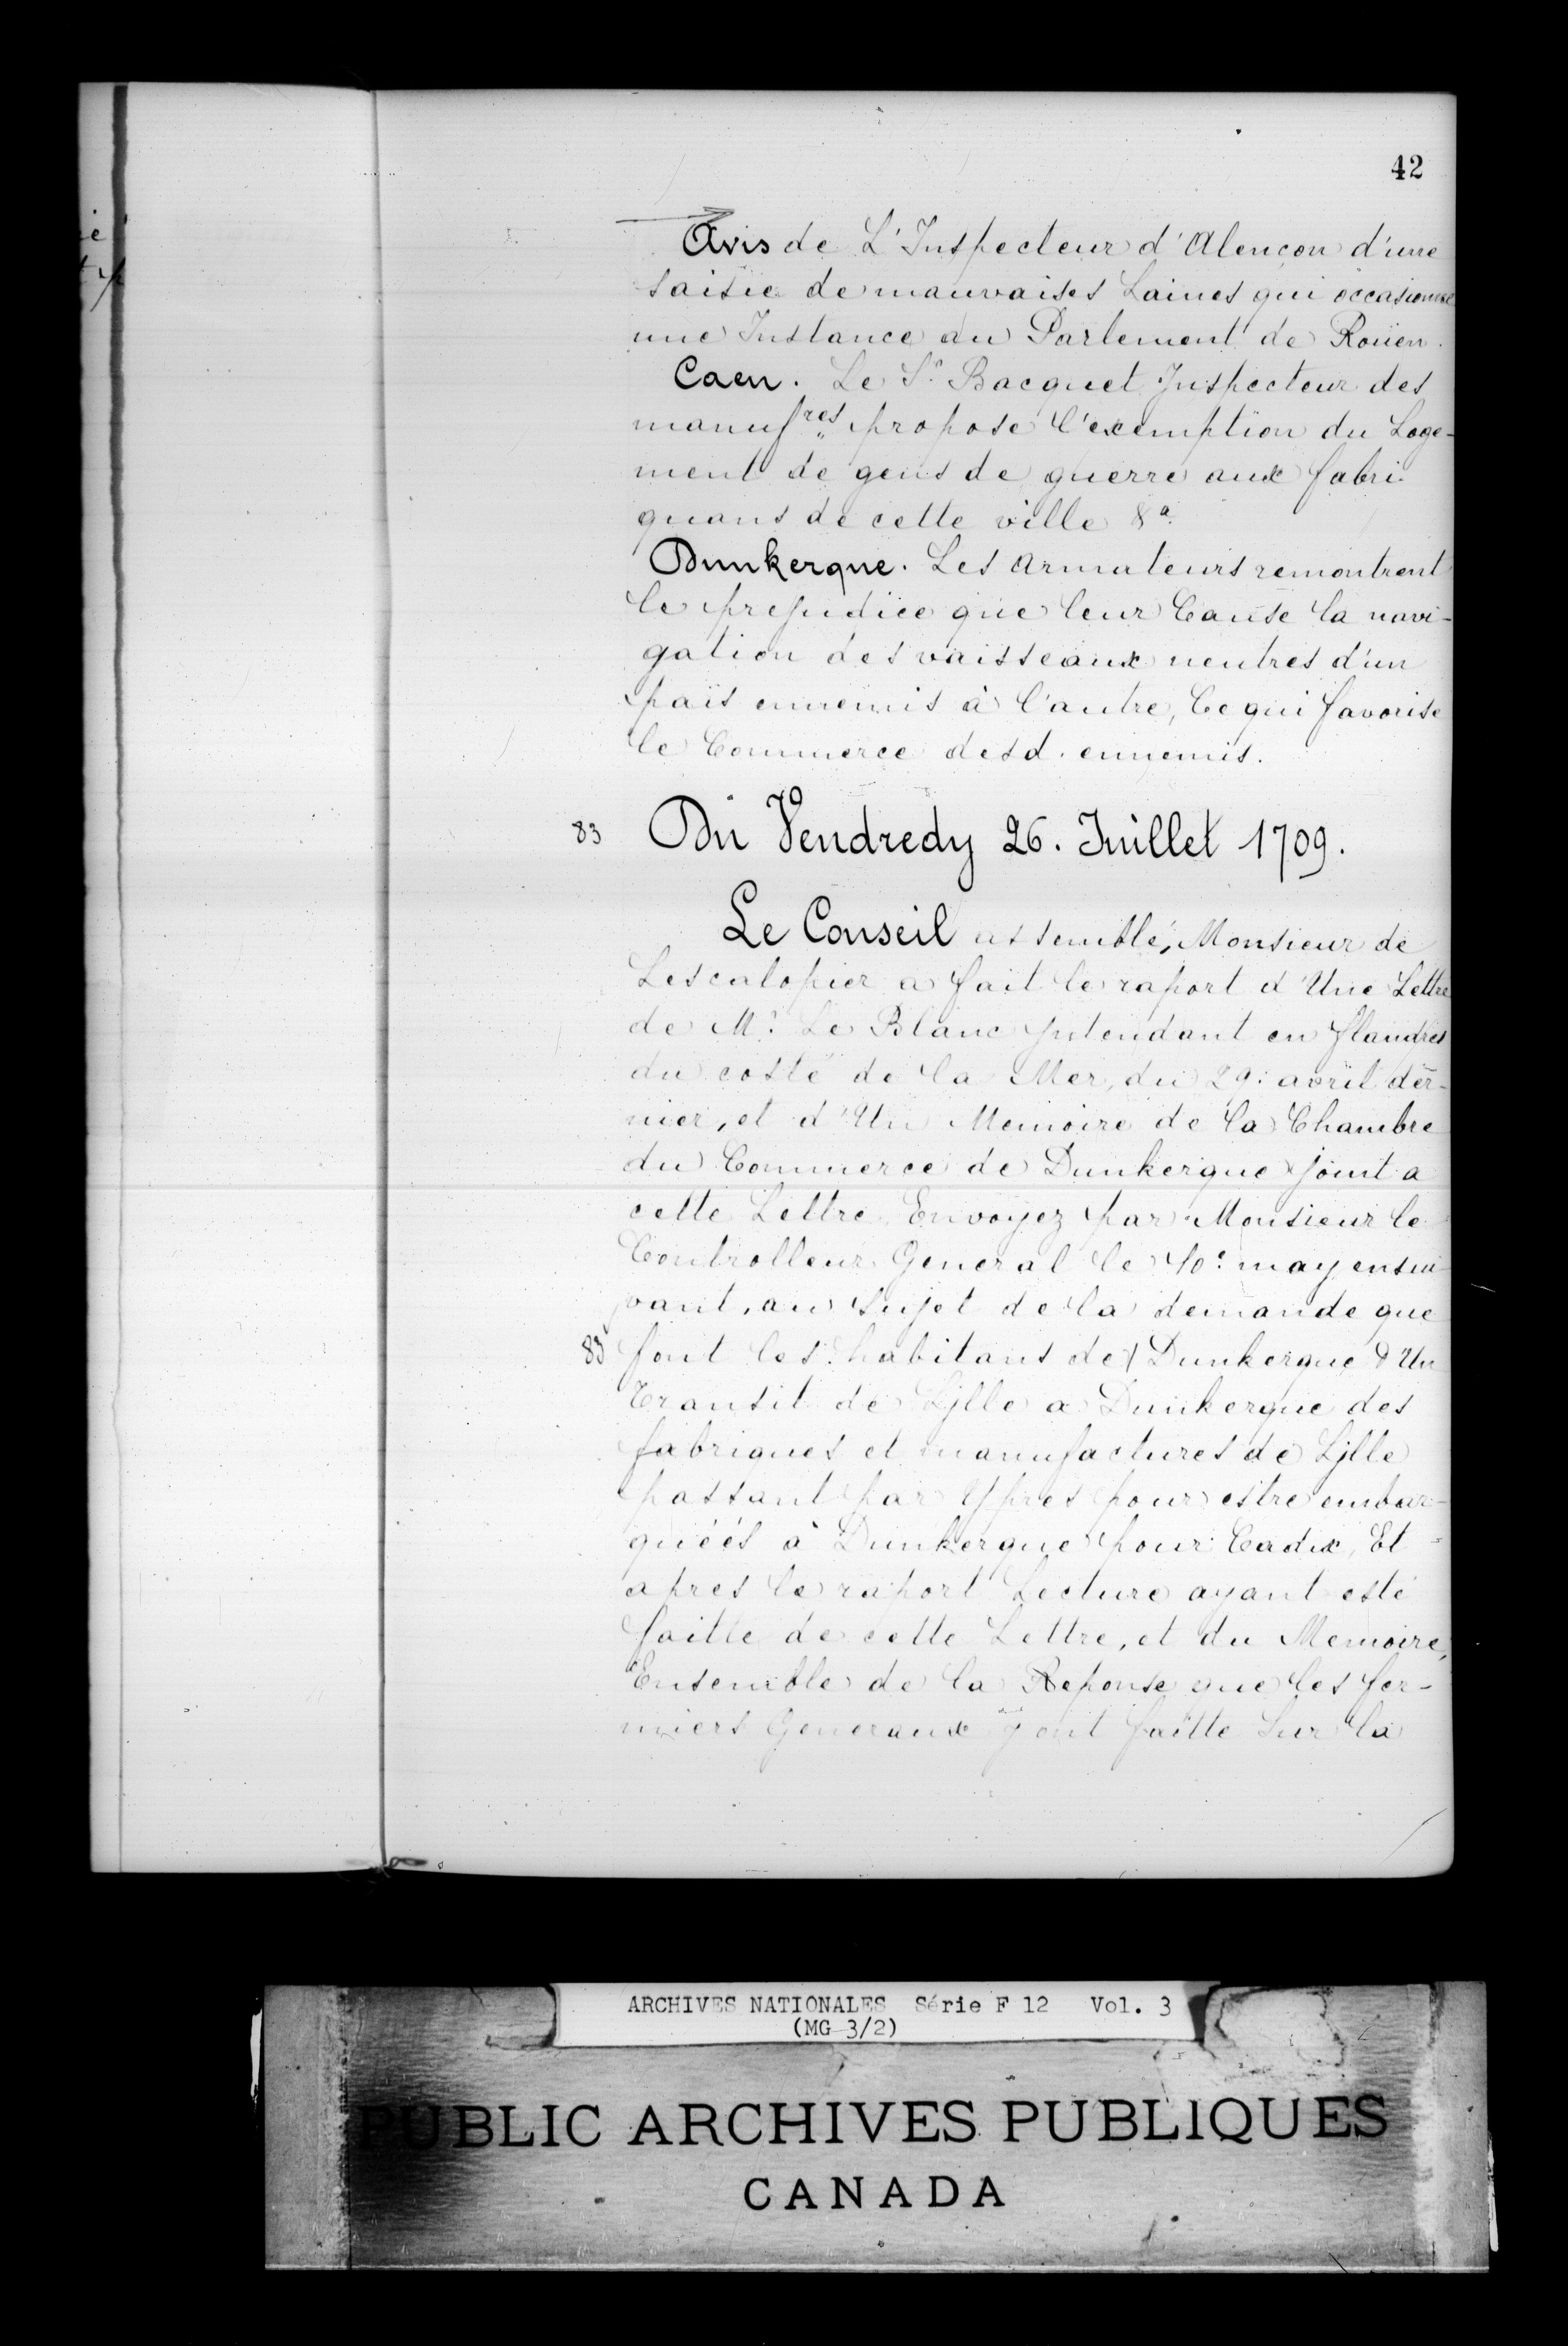 42
Avis de L'Inspecteur d'Alençon d'une
saisie de mauvaises Laines qui occasionne
une Instance au Parlement de Roüen.
Caen. Le Sr. Bacquet Inspecteur des
manufres. propose l'exemption du Loge-
ment de gens de guerre aux fabri
quans de cette ville &a.
Dunkerque. Les Armateurs remontrent
le prejudice que leur Cause la navi-
gation des vaisseaux neutres d'un
païs ennemis à l'autre, Ce qui favorise
le Commerce desd. ennemis.
83 Du Vendredy 26. Juillet 1709.
Le Conseil assemblé, Monsieur de
Lescalopier a fait le raport d'Une Lettre
de Mr. Le Blanc Intendant en flandres
du costé de la Mer, du 29: avril der-
nier, et d'Un Memoire de la Chambre
du Commerce de Dunkerque joint a
cette Lettre Envoyez par Monsieur le
Controlleur General le 10e. may ensui
vant, au Sujet de la demande que
83 font les habitans de Dunkerque d'Un
Transit de Lille a Dunkerque des
fabriques et manufactures de Lille
passant par Ypres pour estre embar-
quéés à Dunkerque pour Cadix, Et
apres le raport Lecture ayant esté
faitte de cette Lettre, et du Memoire,
Ensemble de la Reponse que les fer-
miers Generaux y ont faitte Sur la
ARCHIVES NATIONALES Série F 12 Vol. 3
(MG 3/2)
PUBLIC ARCHIVES PUBLIQUES
CANADA